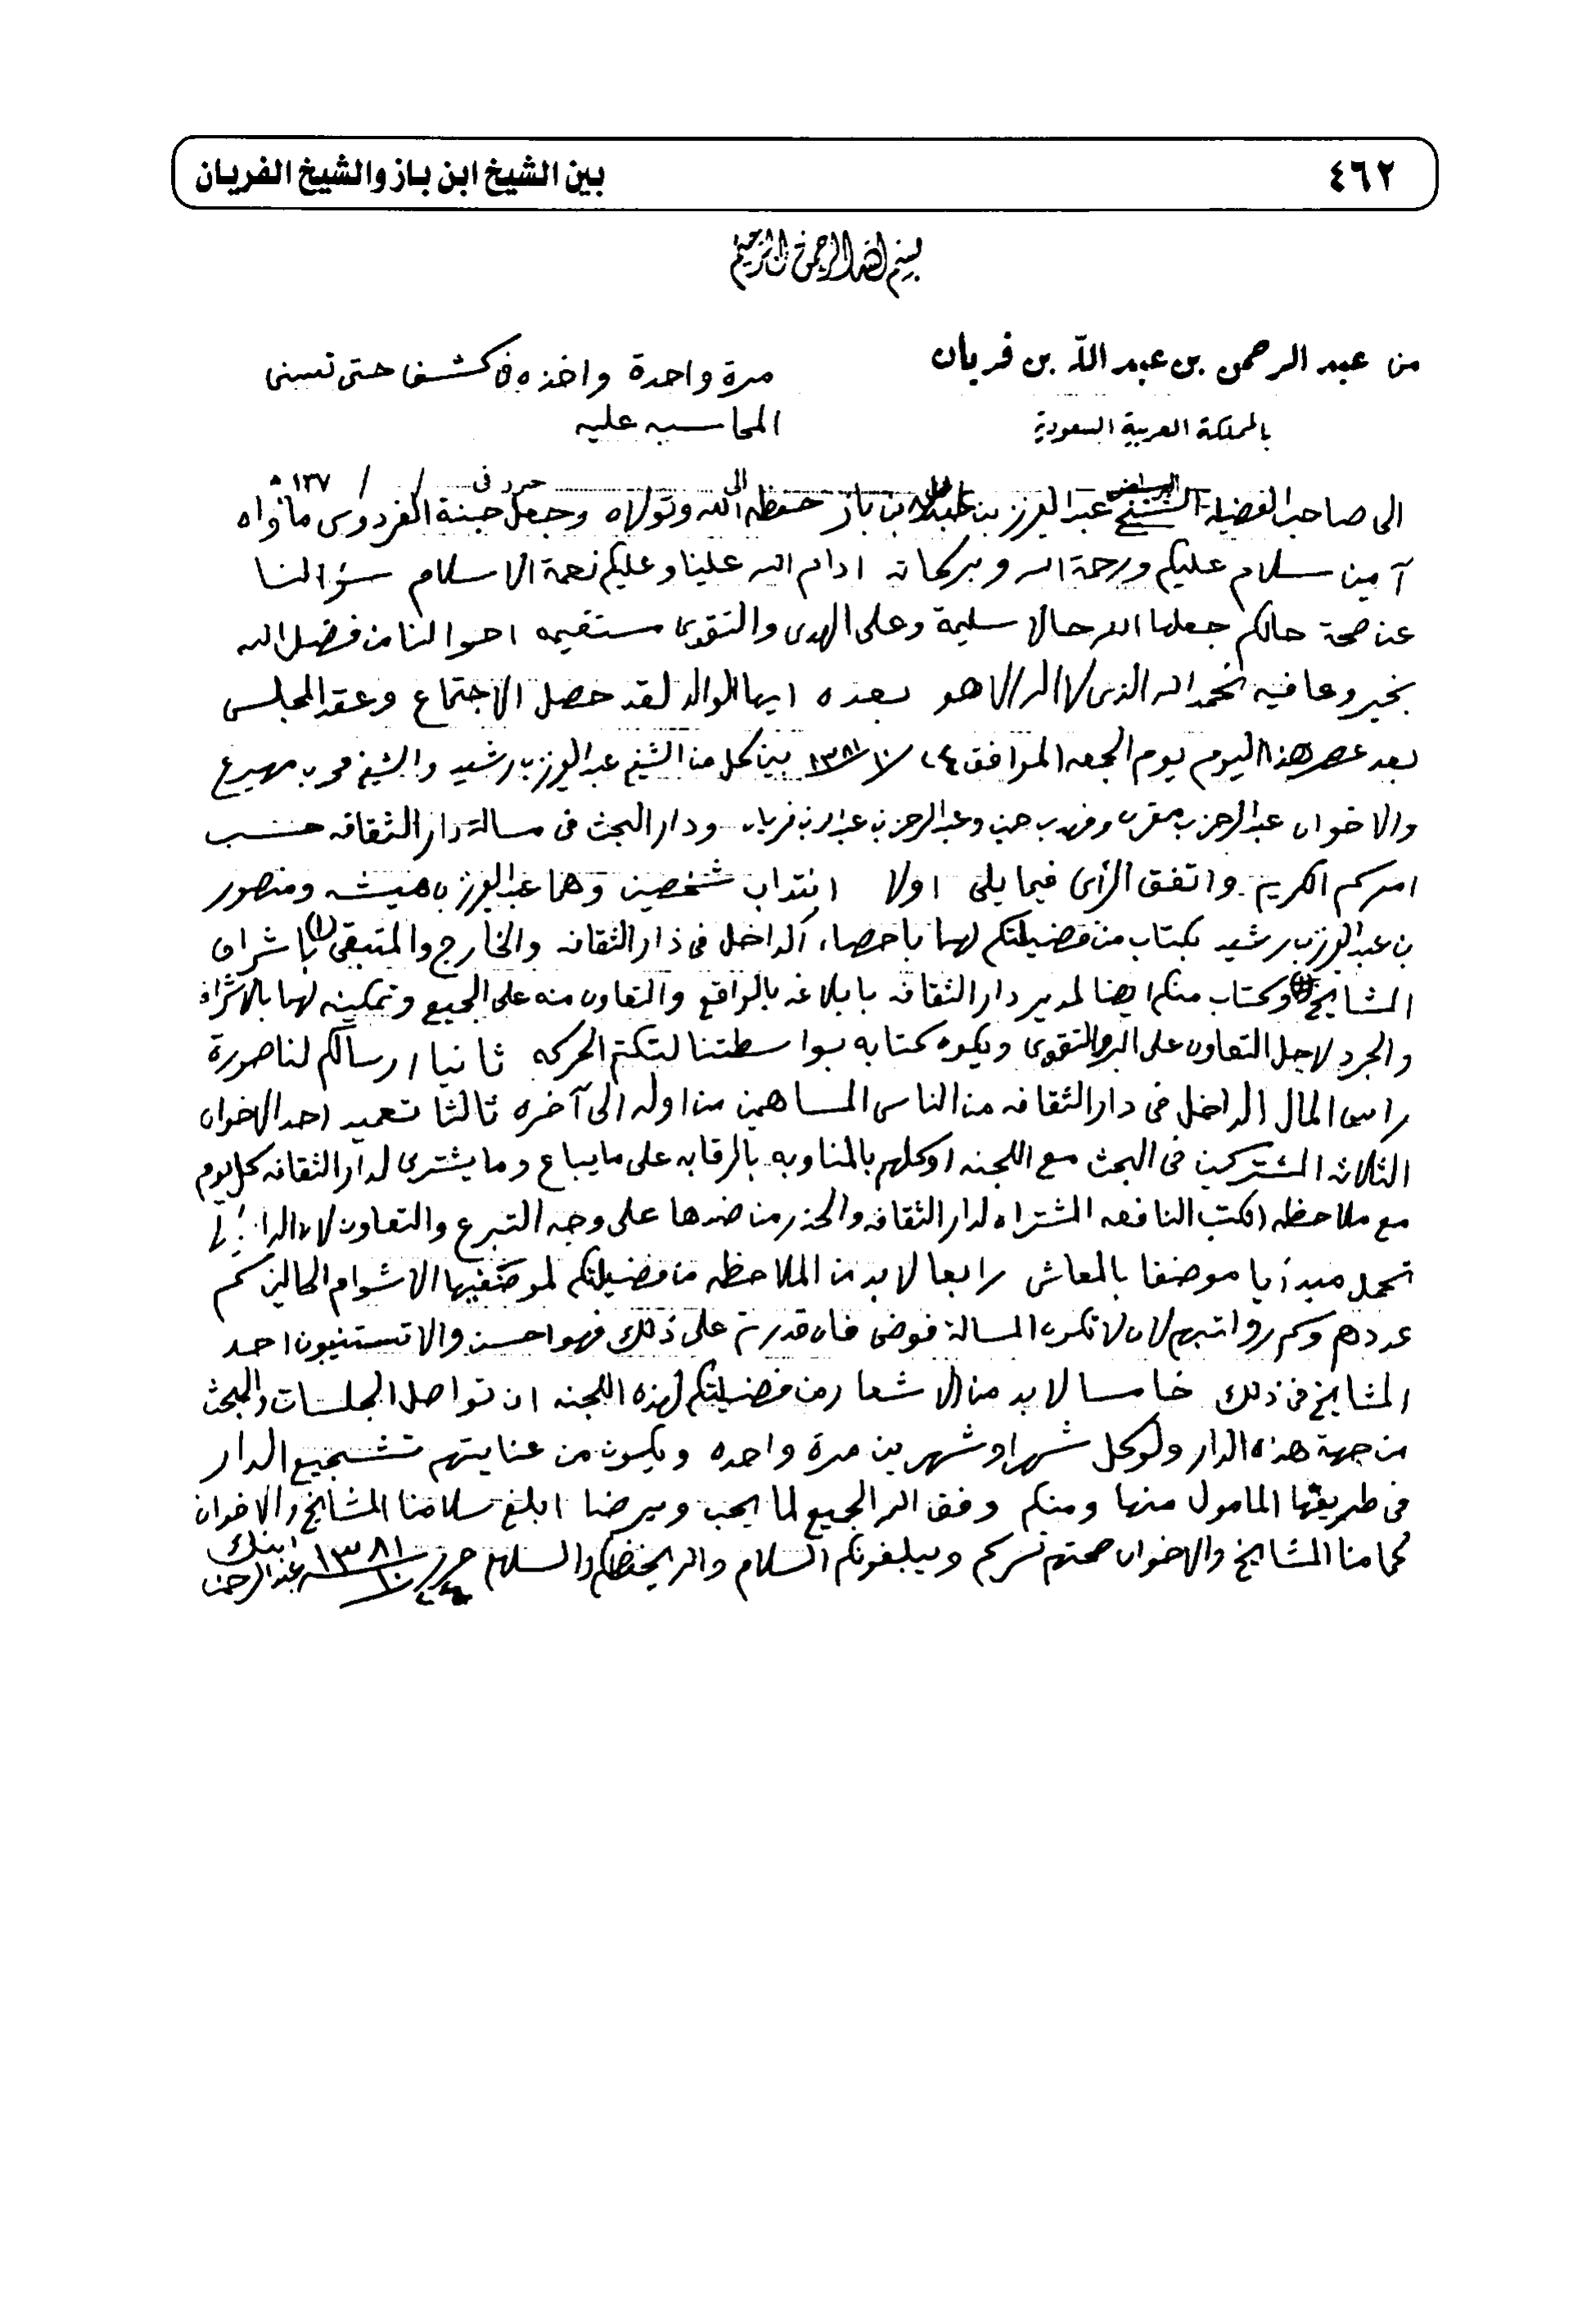 ٤٦٢
بين الشيخ ابن باز والشيخ الفريان
بسم الله الرحمن الرحيم
من عبد الرحمن بن عبد الله بن فريان
بالمملكة العربية السعودية
مرة واحدة واخذه في كشف حتى تسنى
المحاسبه عليه
الرياض الى حرر في / / ١٣٧ هـ
الى صاحب الفضيلة الشيخ عبد العزيز بن عبدالله بن باز حفظه الله وتولاه وجعل جنة الفردوس مأواه
آمين سلام عليكم ورحمة الله وبركاته ادام الله علينا وعليكم نعمة الاسلام سؤالنا
عن صحة حالكم جعلها الله حالا سليمة وعلى الهدى والتقوى مستقيمه احوالنا من فضل الله
بخير وعافيه نحمد الله الذي لا اله الا هو بعده ايها الوالد لقد حصل الاجتماع وعقد المجلس
بعد عصر هذا اليوم يوم الجمعه الموافق ٢٤/١٠/١٣٨١ بين كل من الشيخ عبد العزيز بن رشيد والشيخ محمد بن مهيزع
والاخوان عبد الرحمن بن مقرن وفهد بن حين وعبد الرحمن بن عبد الله بن فريان ودار البحث في مسالة دار الثقافه حسب
امركم الكريم واتفق الرأى فيما يلى اولا انتداب شخصين وهما عبد العزيز بن هيشه ومنصور
بن عبد العزيز بن رشيد بكتاب من فضيلتكم لهما باحصاء الداخل في دار الثقافه والخارج والمتبقي (١) باشراف
المشايخ وكتاب منكم ايضا لمدير دار الثقافه بابلاغه بالواقع والتعاون منه على الجميع وتمكينه لهما بالاشراف
والجرد لاجل التعاون على البر والتقوى ويكون كتابه بواسطتنا لتكتم الحركه ثانيا ارسالكم لنا صورة
راس المال الداخل في دار الثقافه من الناس المساهمين من اوله الى آخره ثالثا تعميد احد الاخوان
الثلاثه المشتركين في البحث مع اللجنه او كلهم بالمناوبه بالرقابه على ما يباع وما يشترى لدار الثقافه كل يوم
مع ملاحظه الكتب النافعه المشتراه لدار الثقافه والحذر من ضدها على وجه التبرع والتعاون لان الدار لم
تحمل مبدأيا موضفا بالمعاش رابعا لا بد من الملاحظه من فضيلتكم لموضفيها الاشوام الحالين كم
عددهم وكم رواتبهم لان لا تكون المسالة فوضى فان قدرتم على ذلك فهو احسن والا تستنيبون احد
المشايخ في ذلك خامسا لا بد من الاشعار من فضيلتكم لهذه اللجنه ان تواصل الجلسات والبحث
من جهة هذه الدار ولو كل شهر او شهرين مرة واحده ويكون من عنايتهم تشجيع الدار
في طريقها المامول منها ومنكم وفق الله الجميع لما يحب ويرضا ابلغ سلامنا المشايخ والاخوان
كما منا المشايخ والاخوان صحتهم تسركم ويبلغونكم السلام والله يحفظكم والسلام حرر ٢٤/١٠/١٣٨١
ابنك
عبد الرحمن